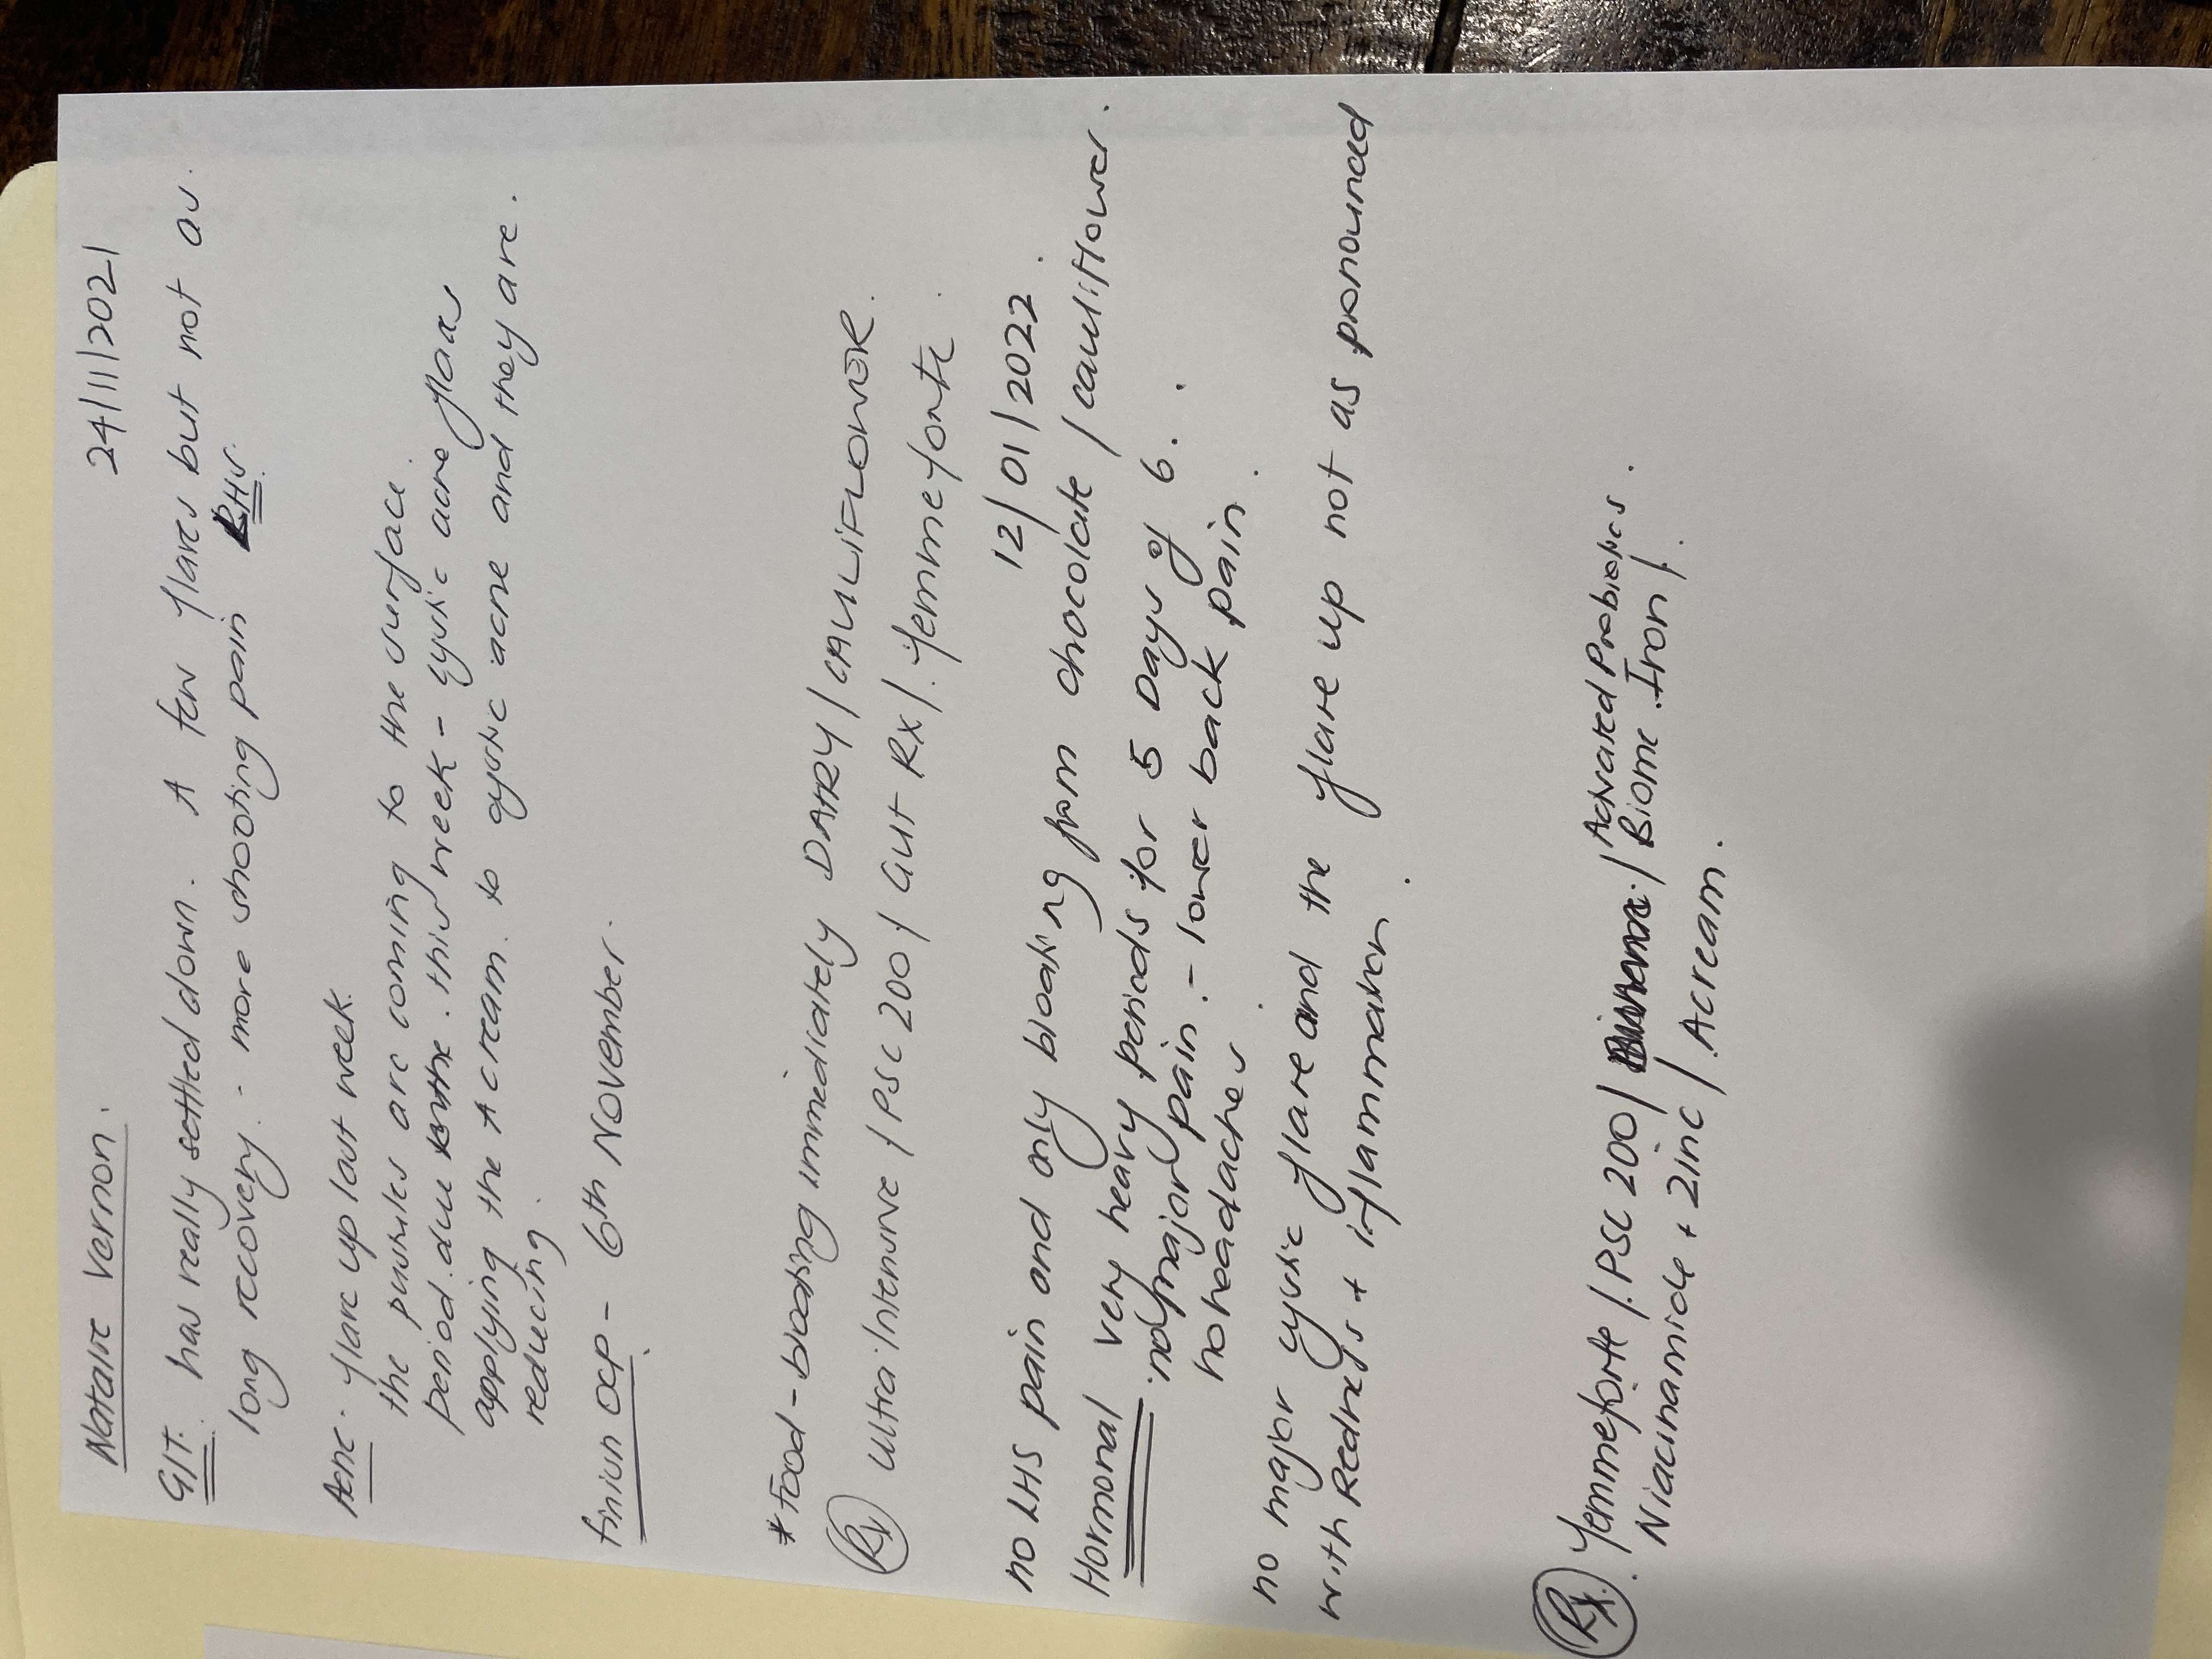 Natalie Vernon. 24/11/2021
GIT. has really settled down. A few flares but not as
long recovery. - more shooting pain RHS.
Acne. flare up last week.
the pustules are coming to the surface.
period due this week - cystic acne flares
applying the A cream. to cystic acne and they are.
reducing.
finish OCP - 6th November.
* Food - bloating immediately DAIRY / CAULIFLOWER.
Rx Ultra Intensive / PSC 200 / Gut Rx / femmeforte.
12/01/2022.
no LHS pain and only bloating from chocolate / cauliflower.
Hormonal very heavy periods for 5 Days of 6.
no major pain. - lower back pain.
no headaches.
no major cystic flare and the flare up not as pronounced
with Redness + inflammation.
Activated Probiotics.
Rx. femmeforte / PSC 200 / / Biome Iron /
Niacinamide + Zinc / A cream.